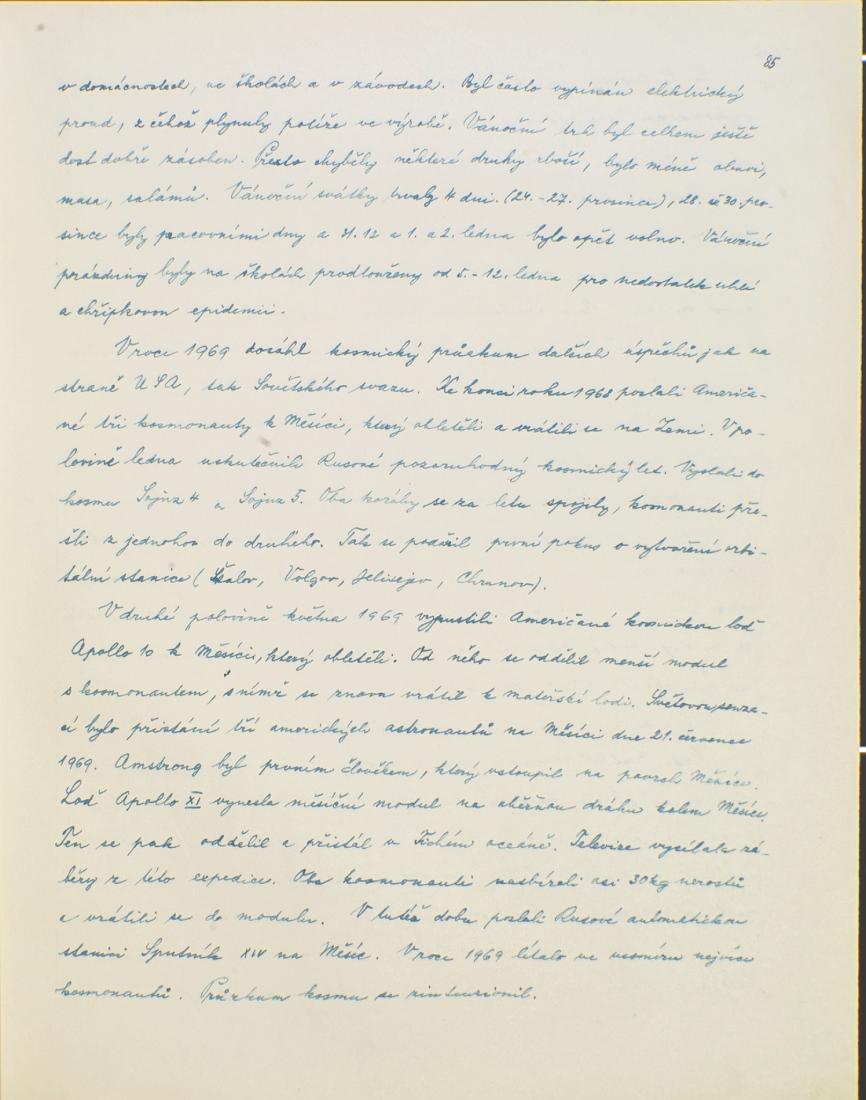 85
v domácnostech, ve školách a v závodech. Byl často vypínán elektrický
proud, z čehož plynuly potíže ve výrobě. Vánoční trh byl celkem ještě
dost dobře zásoben. Přesto chyběly některé druhy zboží, bylo méně obuvi,
masa, salámů. Vánoční svátky trvaly 4 dni. (24.-27. prosince), 28. až 30. pro-
since byly pracovními dny a 31.12 a 1. a 2. ledna bylo opět volno. Vánoční
prázdniny byly na školách prodlouženy od 5.-12. ledna pro nedostatek uhlí
a chřipkovou epidemii.
V roce 1969 dosáhl kosmický průzkum dalších úspěchů jak na
straně USA, tak Sovětského svazu. Ke konci roku 1968 poslali Američa-
né tři kosmonauty k Měsíci, který obletěli a vrátili se na Zemi. V po-
lovině ledna uskutečnili Rusové pozoruhodný kosmický let. Vyslali do
kosmu Sojuz 4 a Sojuz 5. Oba koráby se za letu spojily, kosmonauti pře-
šli z jednoho do druhého. Tak se podařil první pokus o vytvoření orbi-
tální stanice (Šatalov, Volynov, Jelisejev, Chrunov).
V druhé polovině května 1969 vypustili Američané kosmickou loď
Apollo 10 k Měsíci, který obletěli. Od něho se oddělil menší modul
s kosmonautem, s nímž se znovu vrátil k mateřské lodi. Světovou senza-
cí bylo přistání tří amerických astronautů na Měsíci dne 21. července
1969. Amstrong byl prvním člověkem, který vstoupil na povrch Měsíce.
Loď Apollo XI vynesla měsíční modul na oběžnou dráhu kolem Měsíce.
Ten se pak oddělil a přistál v Tichém oceáně. Televize vysílala zá-
běry z této expedice. Oba kosmonauti nasbírali asi 30 kg nerostů
a vrátili se do modulu. V tutéž dobu poslali Rusové automatickou
stanici Sputnik XIV na Měsíc. V roce 1969 létalo ve vesmíru nejvíce
kosmonautů. Průzkum kosmu se zintenzivnil.